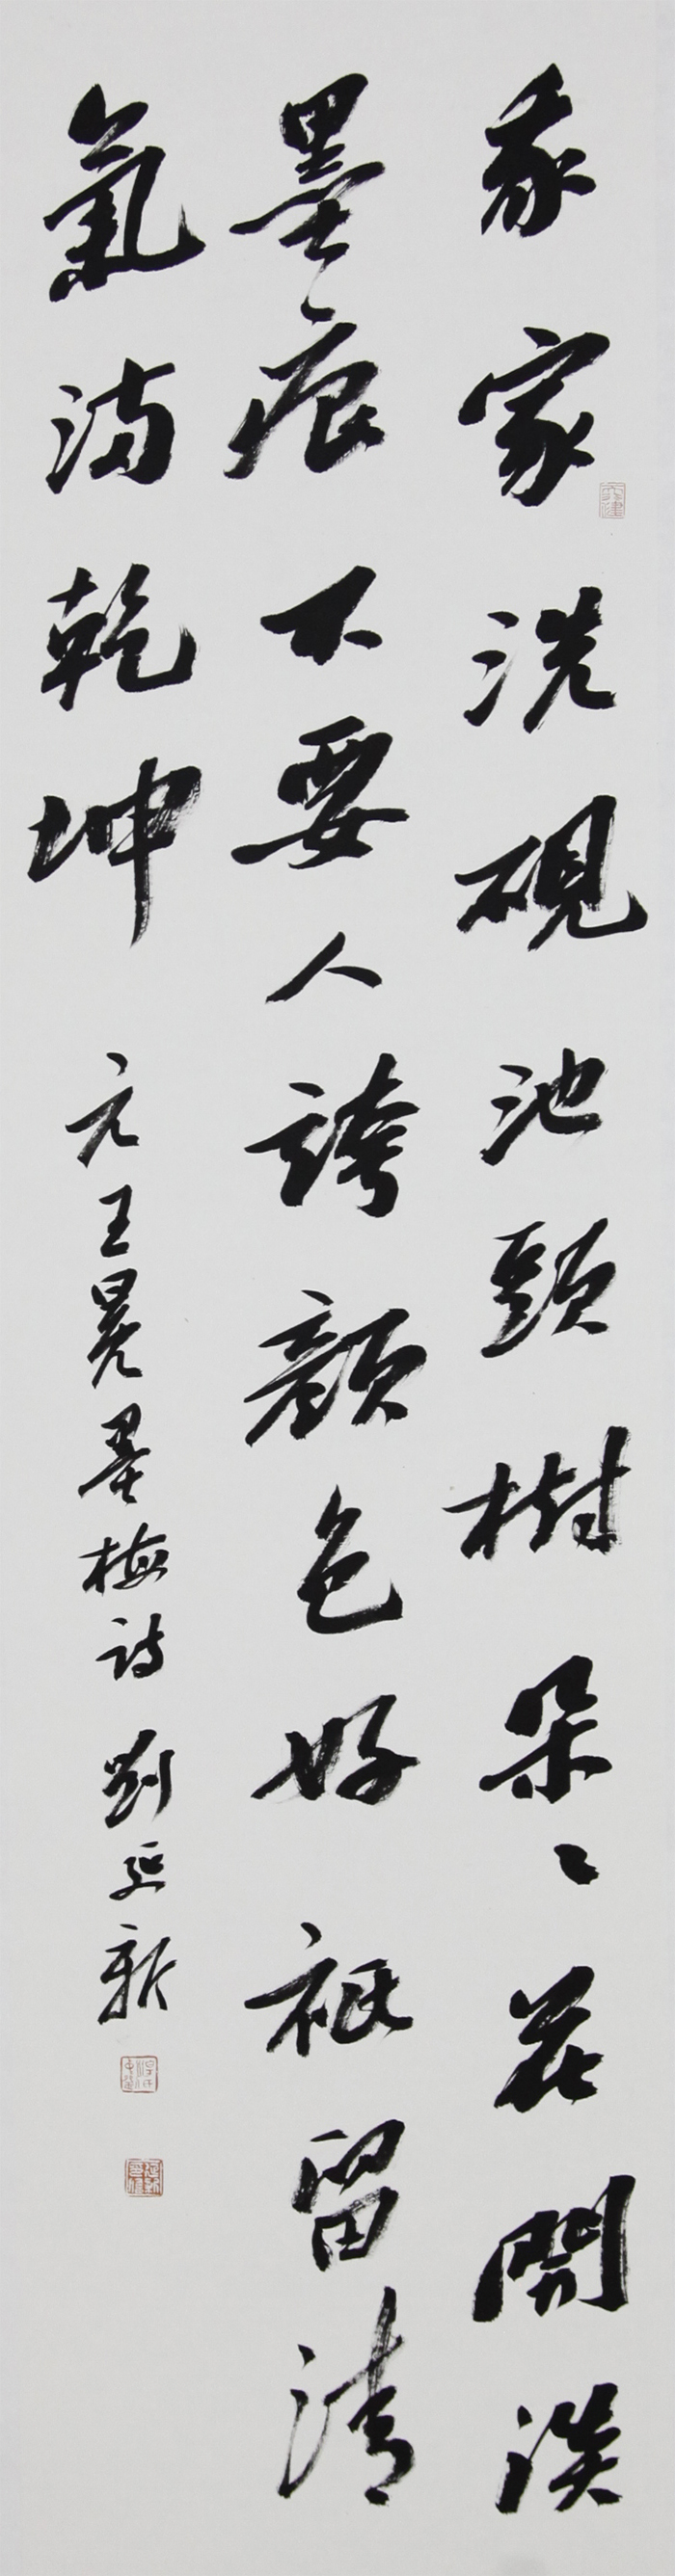 我家洗硯池頭樹朵〻花開淡
墨痕不要人誇顏色好祇留清
氣滿乾坤 元王冕墨梅詩 劉延新